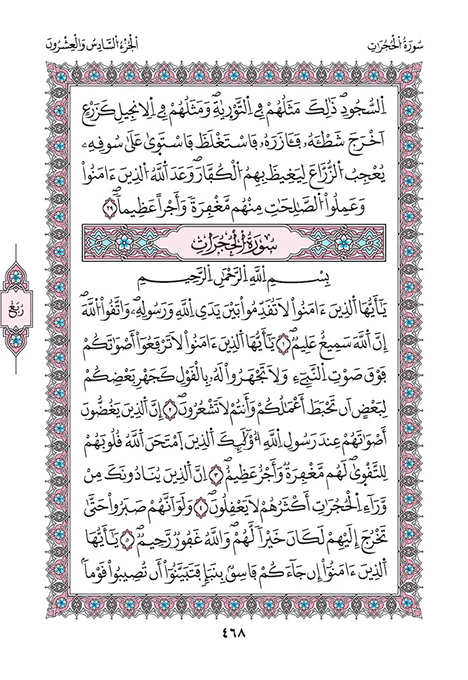 سُورَةُ الْحُجُرَاتِ
الْجُزْءُ السَّادِسُ وَالْعِشْرُونَ
اِ۬لسُّجُودِۖ ذَٰلِكَ مَثَلُهُمْ فِے اِ۬لتَّوْر۪يٰةِۖ وَمَثَلُهُمْ فِے اِ۬لِانجِيلِ كَزَرْعٍ
اَخْرَجَ شَطْـَٔهُۥ فَـَٔازَرَهُۥ فَاسْتَغْلَظَ فَاسْتَو۪يٰ عَلَىٰ سُوقِهِۦ
يُعْجِبُ اُ۬لزُّرَّاعَ لِيَغِيظَ بِهِمُ اُ۬لْكُفَّارَۖ وَعَدَ اَ۬للَّهُ اُ۬لذِينَ ءَامَنُواْ
وَعَمِلُواْ اُ۬لصَّٰلِحَٰتِ مِنْهُم مَّغْفِرَةٗ وَأَجْراً عَظِيماٗۖ ٢٩
سُورَةُ الْحُجُرَاتِ
بِسْمِ اِ۬للَّهِ اِ۬لرَّحْمَٰنِ اِ۬لرَّحِيمِ
يَٰٓأَيُّهَا اَ۬لذِينَ ءَامَنُواْ لَا تُقَدِّمُواْ بَيْنَ يَدَيِ اِ۬للَّهِ وَرَسُولِهِۦۖ وَاتَّقُواْ اُ۬للَّهَۖ
إِنَّ اَ۬للَّهَ سَمِيعٌ عَلِيمٞۖ ١ يَٰٓأَيُّهَا اَ۬لذِينَ ءَامَنُواْ لَا تَرْفَعُوٓاْ أَصْوَٰتَكُمْ
فَوْقَ صَوْتِ اِ۬لنَّبِےٓءِ وَلَا تَجْهَرُواْ لَهُۥ بِالْقَوْلِ كَجَهْرِ بَعْضِكُمْ
لِبَعْضٍ اَن تَحْبَطَ أَعْمَٰلُكُمْ وَأَنتُمْ لَا تَشْعُرُونَۖ ٢ إِنَّ اَ۬لذِينَ يَغُضُّونَ
أَصْوَٰتَهُمْ عِندَ رَسُولِ اِ۬للَّهِ أُوْلَٰٓئِكَ اَ۬لذِينَ اَ۪مْتَحَنَ اَ۬للَّهُ قُلُوبَهُمْ
لِلتَّقْو۪يٰۖ لَهُم مَّغْفِرَةٞ وَأَجْرٌ عَظِيمٌۖ ٣ اِنَّ اَ۬لذِينَ يُنَادُونَكَ مِنْ
وَّرَآءِ اِ۬لْحُجُرَٰتِ أَكْثَرُهُمْ لَا يَعْقِلُونَۖ ٤ وَلَوَ اَنَّهُمْ صَبَرُواْ حَتَّىٰ
تَخْرُجَ إِلَيْهِمْ لَكَانَ خَيْراٗ لَّهُمْۖ وَاللَّهُ غَفُورٞ رَّحِيمٞۖ ٥ يَٰٓأَيُّهَا
اَ۬لذِينَ ءَامَنُوٓاْ إِن جَآءَكُمْ فَاسِقُۢ بِنَبَإٖ فَتَبَيَّنُوٓاْ أَن تُصِيبُواْ قَوْماَۢ
رُبُعْ
٤٦٨